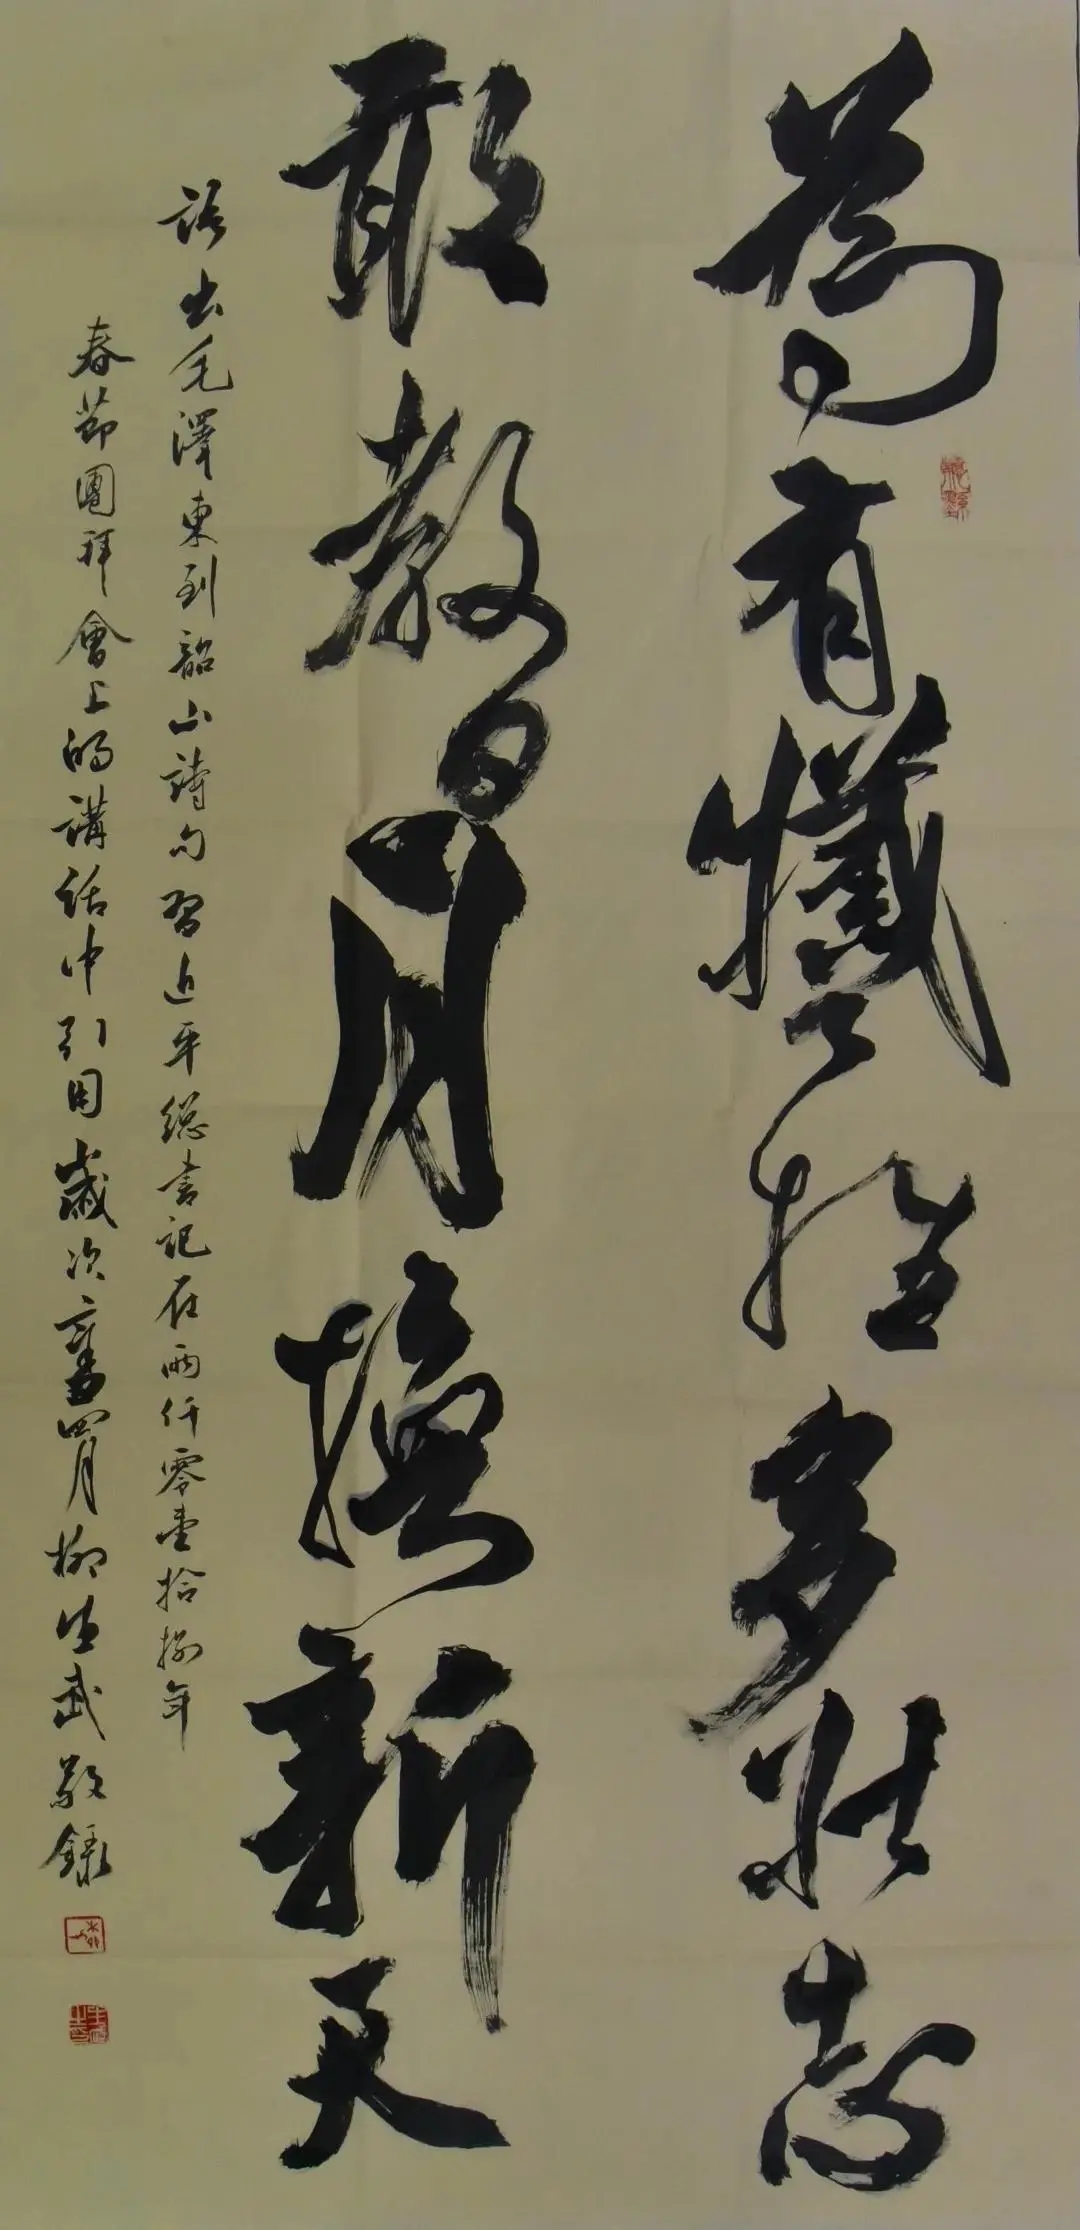 為有犧牲多壯志
敢教日月換新天
語出毛澤東到韶山詩句習近平總書記在兩仟零壹拾捌年
春節團拜會上的講話中引用歲次辛丑四月柳生武敬錄